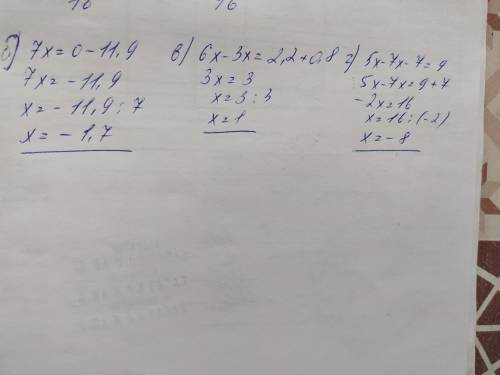 б) 7x = 0 - 11,9
7x = - 11,9
x = - 11,9 : 7
x = - 1,7
в) 6x - 3x = 2,2 + 0,8
3x = 3
x = 3 : 3
x = 1
г) 5x - 7x - 7 = 9
5x - 7x = 9 + 7
- 2x = 16
x = 16 : (-2)
x = - 8